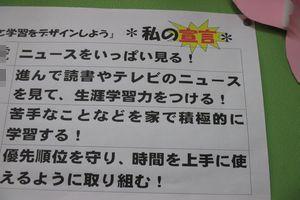 と学習をデザインしよう」 ＊私の宣言＊
ニュースをいっぱい見る！
進んで読書やテレビのニュース
を見て、生涯学習力をつける！
苦手なことなどを家で積極的に
学習する！
優先順位を守り、時間を上手に使
えるように取り組む！